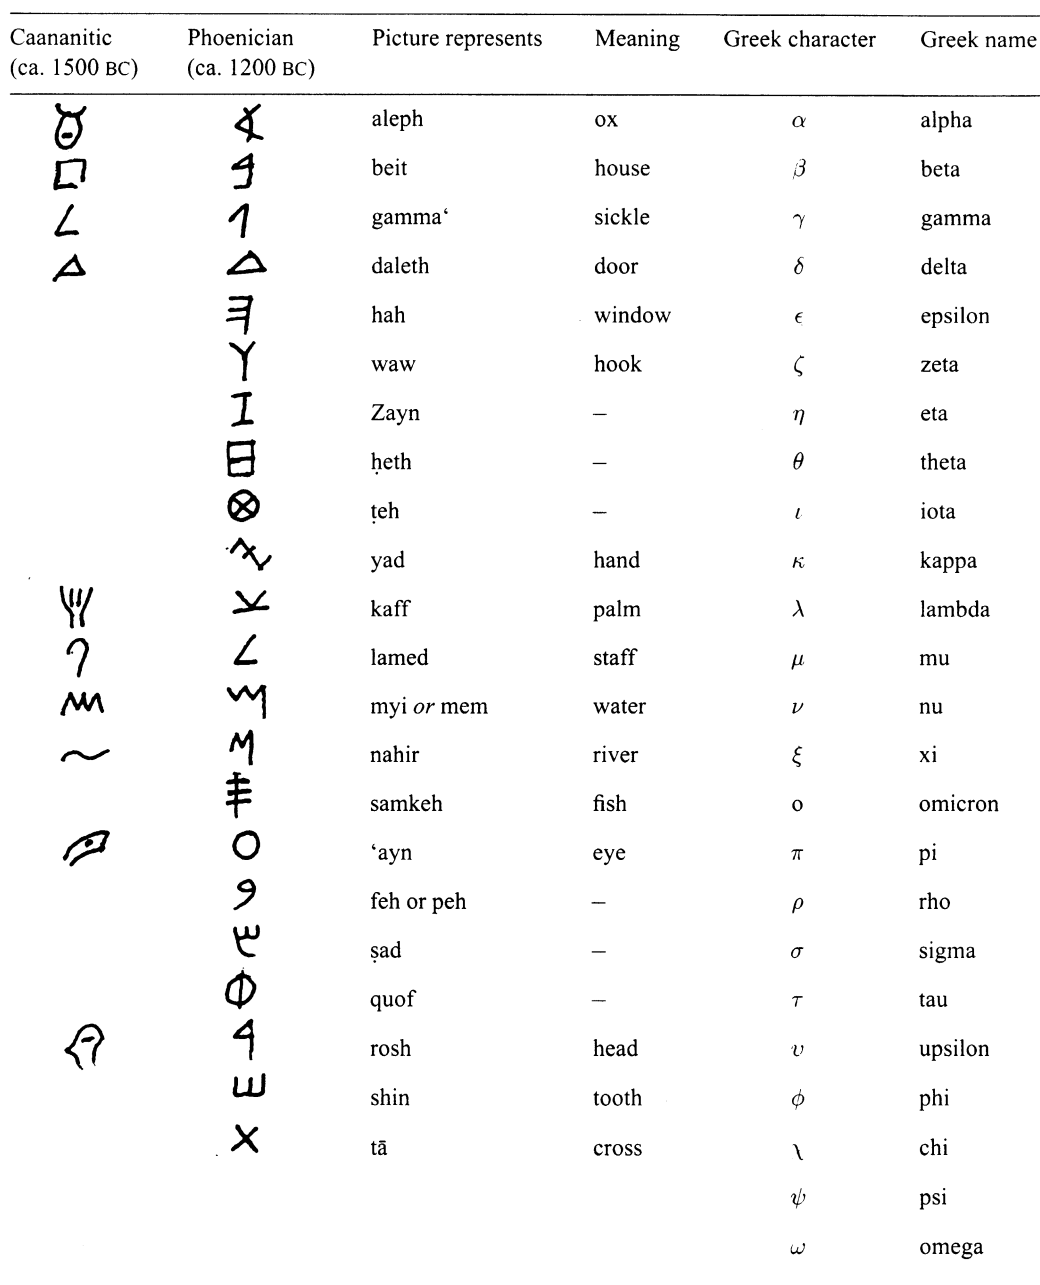 Caananitic Phoenician Picture represents Meaning Greek character Greek name
(ca. 1500 BC) (ca. 1200 BC)
aleph ox α alpha
beit house β beta
gamma‘ sickle γ gamma
daleth door δ delta
hah window ϵ epsilon
waw hook ζ zeta
Zayn – η eta
ḥeth – θ theta
ṭeh – ι iota
yad hand κ kappa
kaff palm λ lambda
lamed staff μ mu
myi or mem water ν nu
nahir river ξ xi
samkeh fish o omicron
‘ayn eye π pi
feh or peh – ρ rho
ṣad – σ sigma
quof – τ tau
rosh head υ upsilon
shin tooth ϕ phi
tā cross χ chi
ψ psi
ω omega